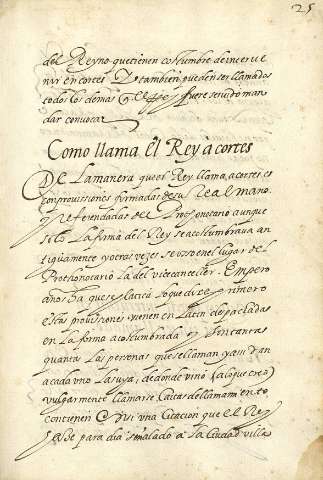 25
del Reyno que tienen costumbre de interue
nir en cortes Y tambien pueden ser llamados
todos los demas q el Rey fuere seruido man
dar conuocar
Como llama El Rey à cortes
DE La manera que el Rey llama, a cortes, es
con prouissiones firmadas de su Real mano.
y referendadas del Prothonotario aunque
solo La firma del Rey se acostumbraua an
tiguamente y otras vezes se vsso en el lugar del
Prothonotario La del vicecanceller. Empero
años ha que se platica lo que dixe primero
estas prouisiones vienen en Latin despachadas
en La forma acostumbrada y son tantas
quantas Las personas que se llaman y a m dan
a cada vno La suya, de donde vino (a lo que creo)
vulgarmente llamarse Cartas de llamamiento
contienen en si vna Citacion que el Rey
haze para dia señalado a La Ciudad villa